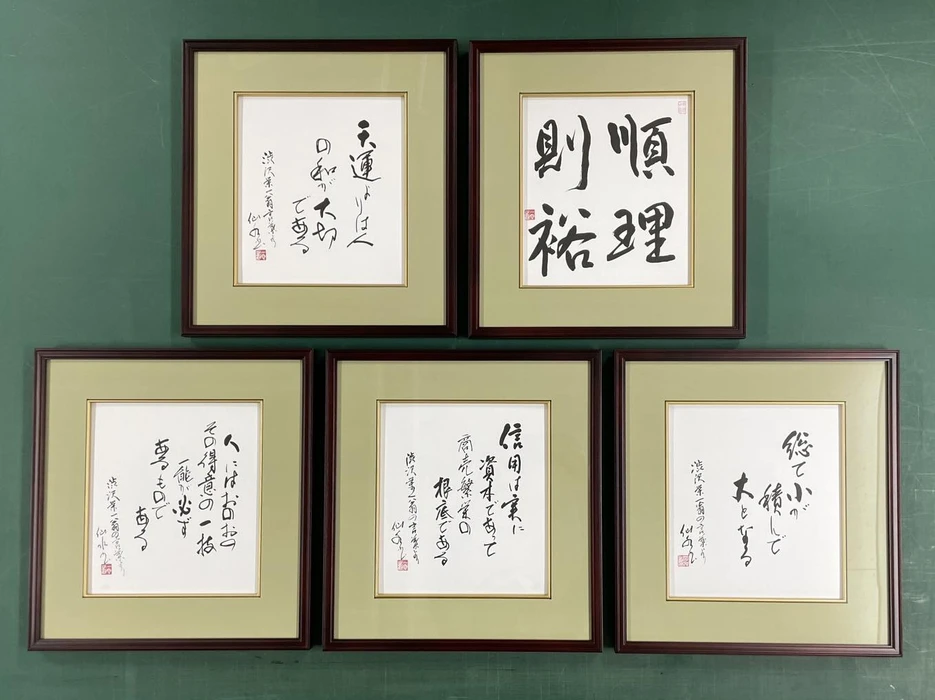 順理
則裕
天運よりは人
の和が大切
である
渋沢栄一翁の言葉より
総て小が
積んで
大となる
渋沢栄一翁の言葉より
信用は実に
資本であって
商売繁栄の
根底である
渋沢栄一翁の言葉より
人にはおのおの
その得意の一技
一能が必ず
あるもので
ある
渋沢栄一翁の言葉より